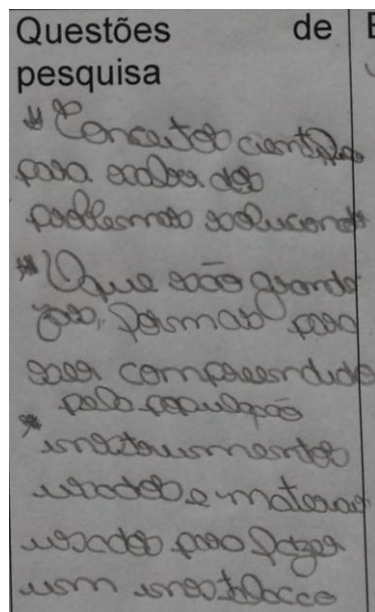 Questões de E
pesquisa
* Conceitos científicos
para saber dos
problemas solucionados
* O que são grande
zas, formas para
ser compreendido
pela população
* instrumentos
usados e materiais
usados para fazer
um